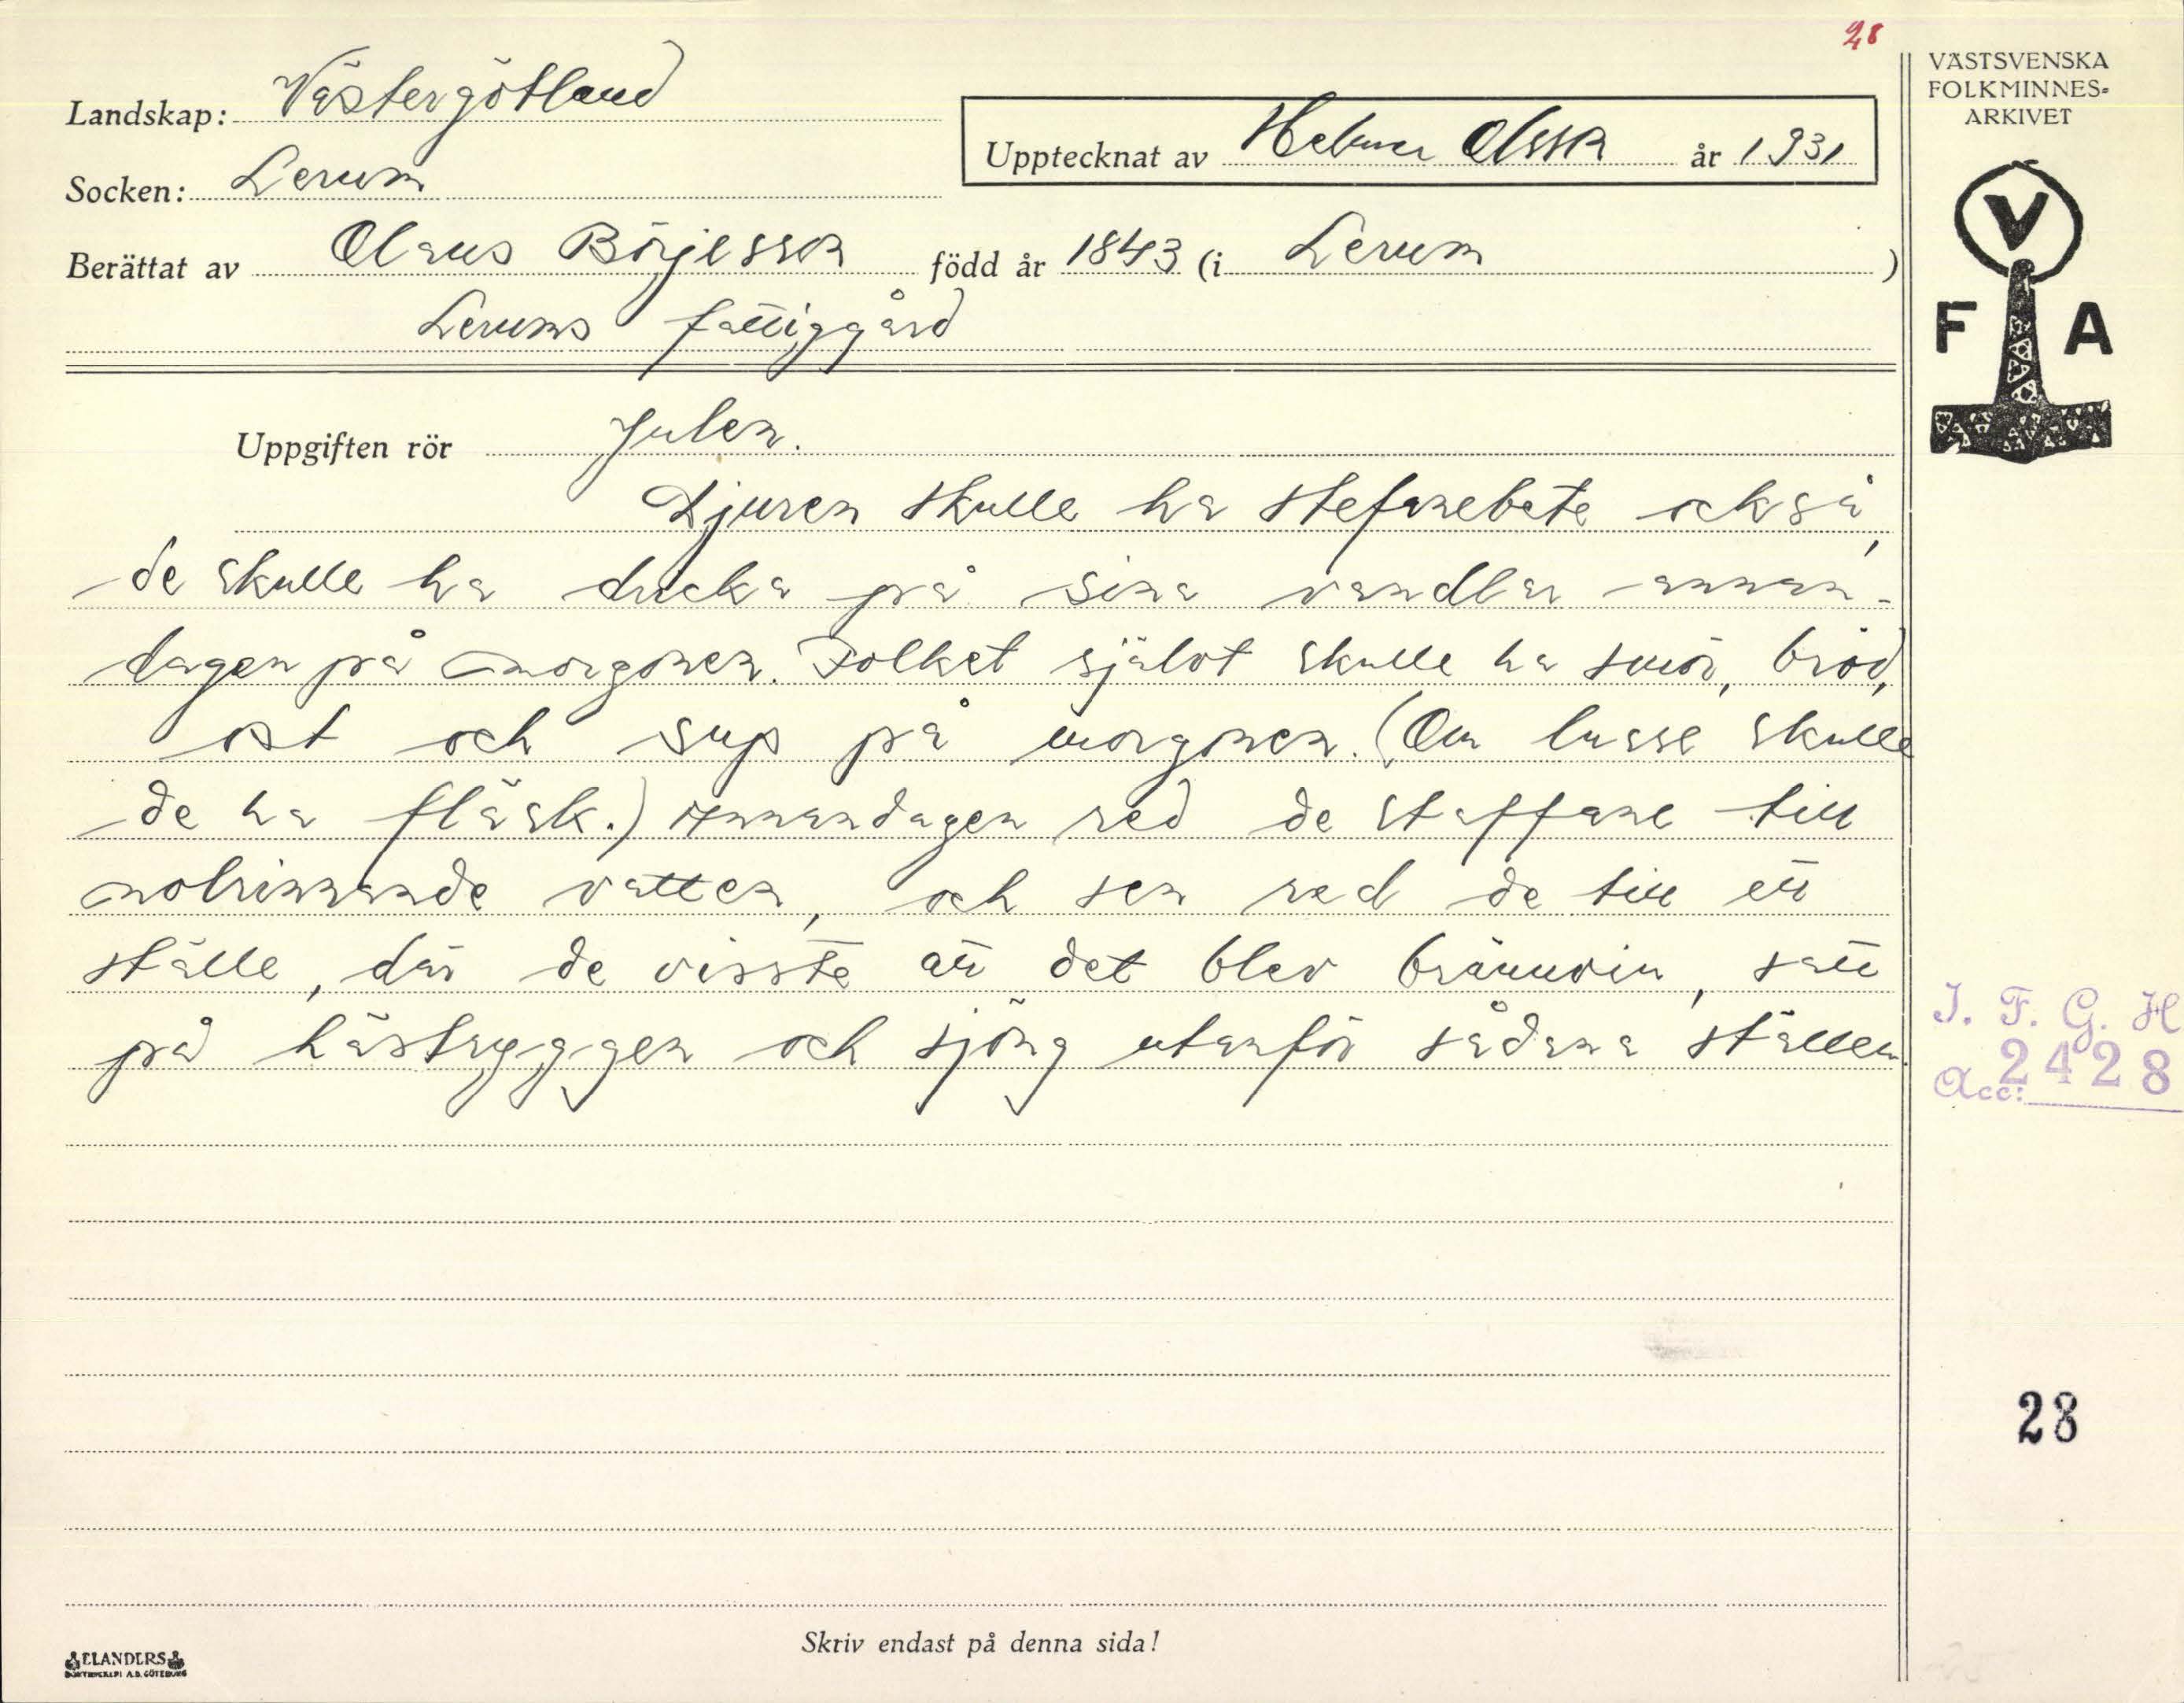 28
VÄSTSVENSKA
FOLKMINNES=
ARKIVET
Landskap: Västergötland
Upptecknat av Helmer Olsson år 1931
Socken: Lerum
Berättat av Claus Börjesson född år 1843 (i Lerum)
Lerums fattiggård
V
F A
Uppgiften rör Julen.
Djuren skulle ha stefanebete också,
de skulle ha dricka på sina vandlar annan-
dagen på morgonen. Folket självt skulle ha smör, bröd,
ost och sup på morgonen. (Om lusse skulle
de ha fläsk.) Annandagen red de staffane till
nolrinnande vatten, och sen red de till ett
ställe, där de visste att det blev brännvin, satt
på hästryggen och sjöng utanför sådana ställen.
I. F. G. H
Acc: 2428
28
Skriv endast på denna sida!
ELANDERS
BOKTRYCKERI A.B. GÖTEBORG